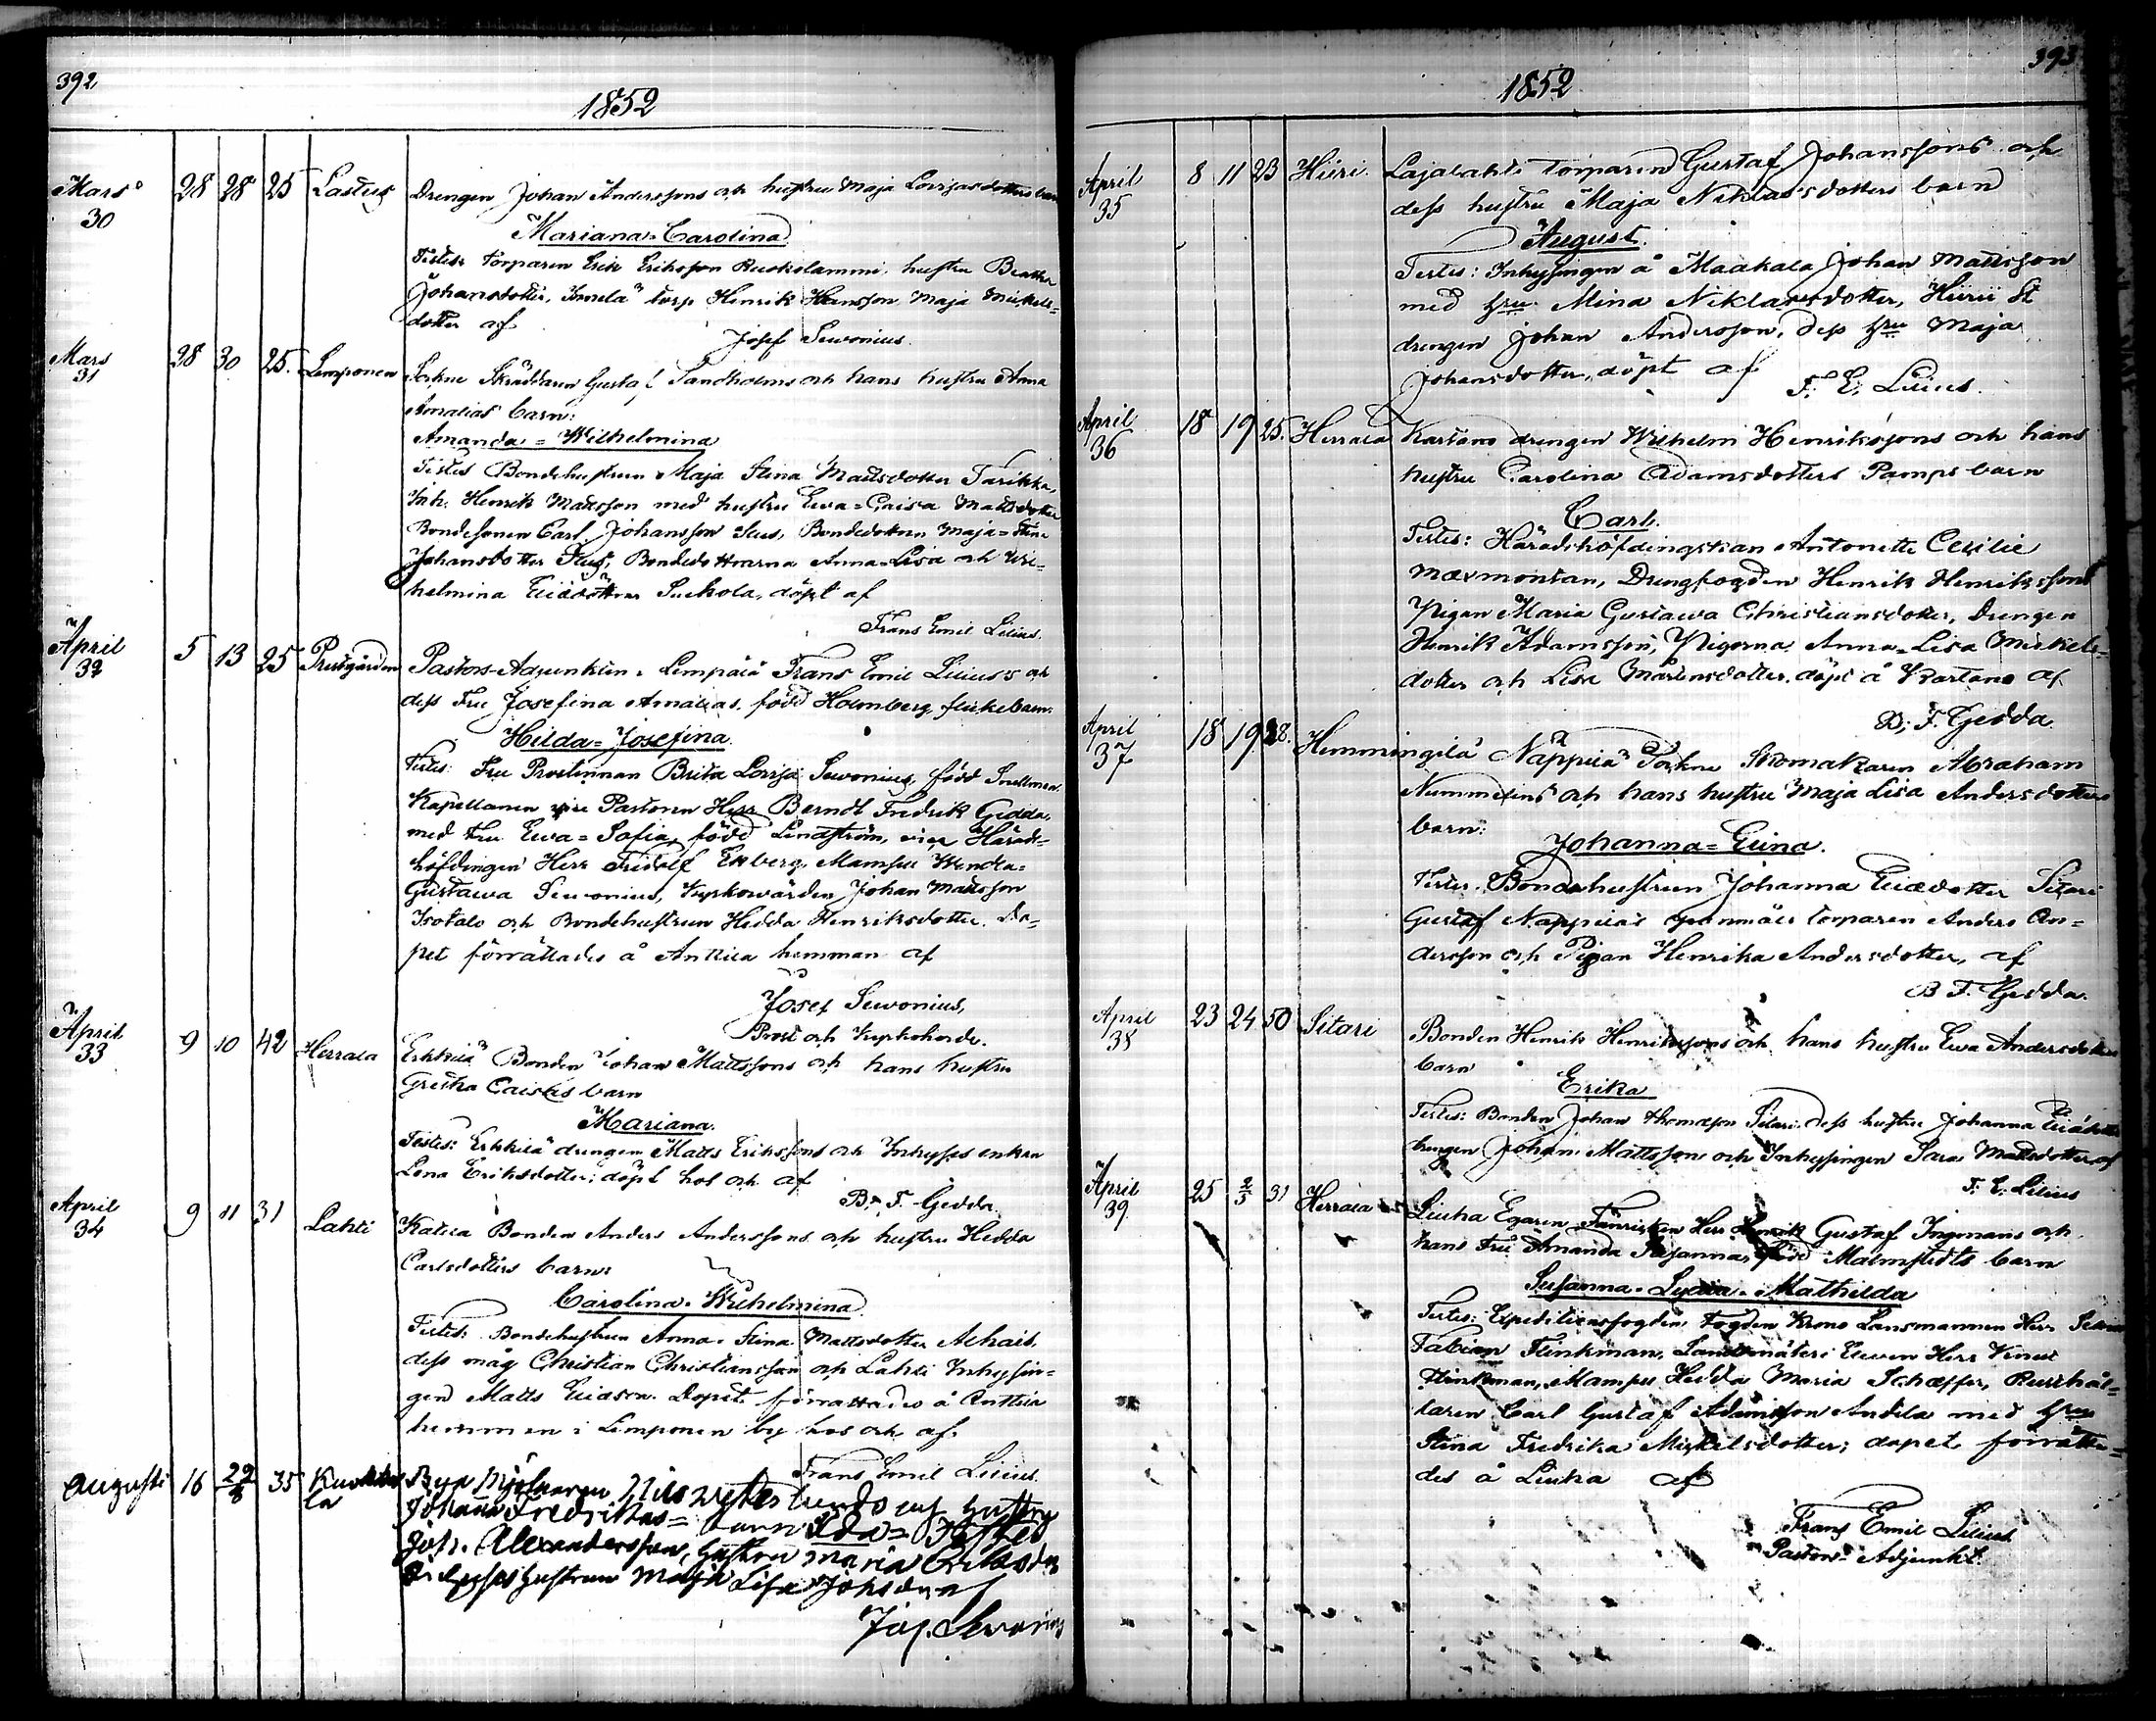 392
1852
Mars 28 28 25 Lastus Drengen Johan Anderssons och hustru Maja Lovisasdotters barn
30
Mariana-Carolina
Testes torparen Erik Eriksson Ruokolammi, hustru Beatha
Johansdotter, torp Henrik Hansson Maja Mickels=
dotter af
Josef Sevonius.
Mars 28 30 25. Lemponen Sockne Skräddaren Gustaf Sandholms och hans hustru Anna
31
Amalias barn:
Amanda=Wilhelmina
Testes Bondehustrun Maja Stina Mattsdotter
Inh. Henrik Mattsson med hustru Ewa=Caisa Mattsdotter
Bondesonen Carl Johansson Bondedottern Maja=Stina
Johansdotter Bondedöttrarna Anna=Lisa och Wil=
helmina Eliædöttrar Suckola, döpt af
Frans Emil Lilius.
April 5 13 25 Prestgården Pastors-Adjunkten i Lempälä Frans Emil Lilius's och
32
dess Fru Josefina Amalias, född Holmberg, flickebarn.
Hilda=Josefina.
Testes: Fru Prostinnan Brita Lovisa Sevonius, född Snellman
Kapellanen vice Pastoren Herr Berndt Fredrik Gedda,
med Fru Ewa=Sofia, född Lindström, vice Härads=
höfdingen Herr Fridolf Ekberg, Mamsell Wendla=
Gustawa Sevonius, Kyrkowärden Johan Mattsson
Isotalo och Bondehustrun Hedda Henriksdotter. Do=
pet förrättades å Anttila hemman af
Josef Sevonius,
Prost och Kyrkoherde.
April 9 10 42 Herrala Erkkilä Bonden Johan Mattssons och hans hustru
33
Gretha Caisas barn
Mariana.
Testes: Erkkilä drengen Matts Erikssons och Inhyses enkan
Lena Eriksdotter; döpt hos och af
B. F. Gedda.
April 9 11 31 Lahti Katila Bonden Anders Anderssons och hustru Hedda
34
Carlsdotters barn:
Carolina-Wilhelmina
Testes: Bondehustrun Anna-Stina Mattsdotter
dess måg Christian Christiansson och Lahti Inhysin=
gen Matts Eliasson. Dopet förrättades å Anttila
hemman i Lemponen by hos och af
Frans Emil Lilius.
Augusti 16 22/8 35 la mjölnaren Nils Westerlunds och hustru
Johanna Fredrikas= barn Ida=
Joh. Alexandersson, hustru Maria Eriksdr,
hustrun Maja Lisa Johsdr af
Jos. Sevonius
393
1852
April 8 11 23 Hiiri Lajalahti torparen Gustaf Johanssons och
35
dess hustru Maja Niklasdotters barn
August.
Testes: Inhysingen å Maakala Johan Mattsson
med hru Mina Niklasdotter, Hiiri St
drengen Johan Andersson, dess hru Maja
Johansdotter, döpt af F. E. Lilius.
April 18 19 25. Herrala Kartano drengen Wilhelm Henrikssons och hans
36
hustru Carolina Adamsdotters Pamps barn
Carl.
Testes: Häradshöfdingskan Antonette Cecilie
Maxmontan, Drengfogden Henrik Henrikssons
Pigan Maria Gustawa Christiansdotter, Drengen
Henrik Adamsson, Pigorna Anna-Lisa Mickels=
dotter och Lisa Mårtensdotter. döpt å Kartano af
B. F. Gedda.
April 18 19 28. Hemmingilä Näppilä Sockne Skomakaren Abraham
37
Nummelins och hans hustru Maja Lisa Andersdotters
barn:
Johanna=Elina.
Testes: Bondehustrun Johanna Eliædotter Sitari
Gustaf Näppiläs torparen Anders An=
dersson och Pigan Henrika Andersdotter, af
B. F. Gedda.
April 23 24 50 Sitari Bonden Henrik Henrikssons och hans hustru Ewa Andersdotters
38
barn
Erika
Testes: Bonden Johan Thomasson Sitari dess hustru Johanna Eliædotter
drengen Johan Mattsson och Inhysingen Sara Mattsdotter af
F. E. Lilius
April 25 2/5 31 Herrala Liuha Egaren Fänriken Herr Henrik Gustaf Ingmans och
39
hans Fru Amanda Susannas, född Malmstedts barn
Susanna-Lydia-Mathilda
Testes: Expeditionsfogden, Fogden Krono Länsmannen Herr
Fabian Flinkman, Landtmäteri Eleven Herr Knut
Flinkman, Mamsell Hedda Maria Schæffer, Rusthål=
laren Carl Gustaf Adamsson Andila med hru
Stina Fredrika Mickelsdotter; dopet förrätta=
des å Liuha af
Frans Emil Lilius
Pastors-Adjunkt.